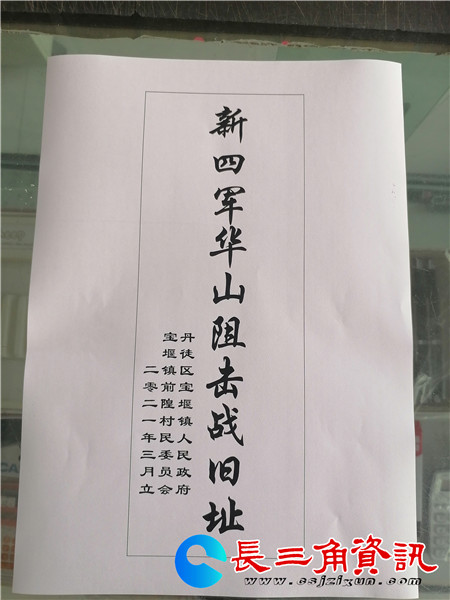 新四军华山阻击战旧址
丹徒区宝堰镇人民政府
宝堰镇前隍村民委员会
二零二一年三月立
長三角資訊
www.csjzixun.com